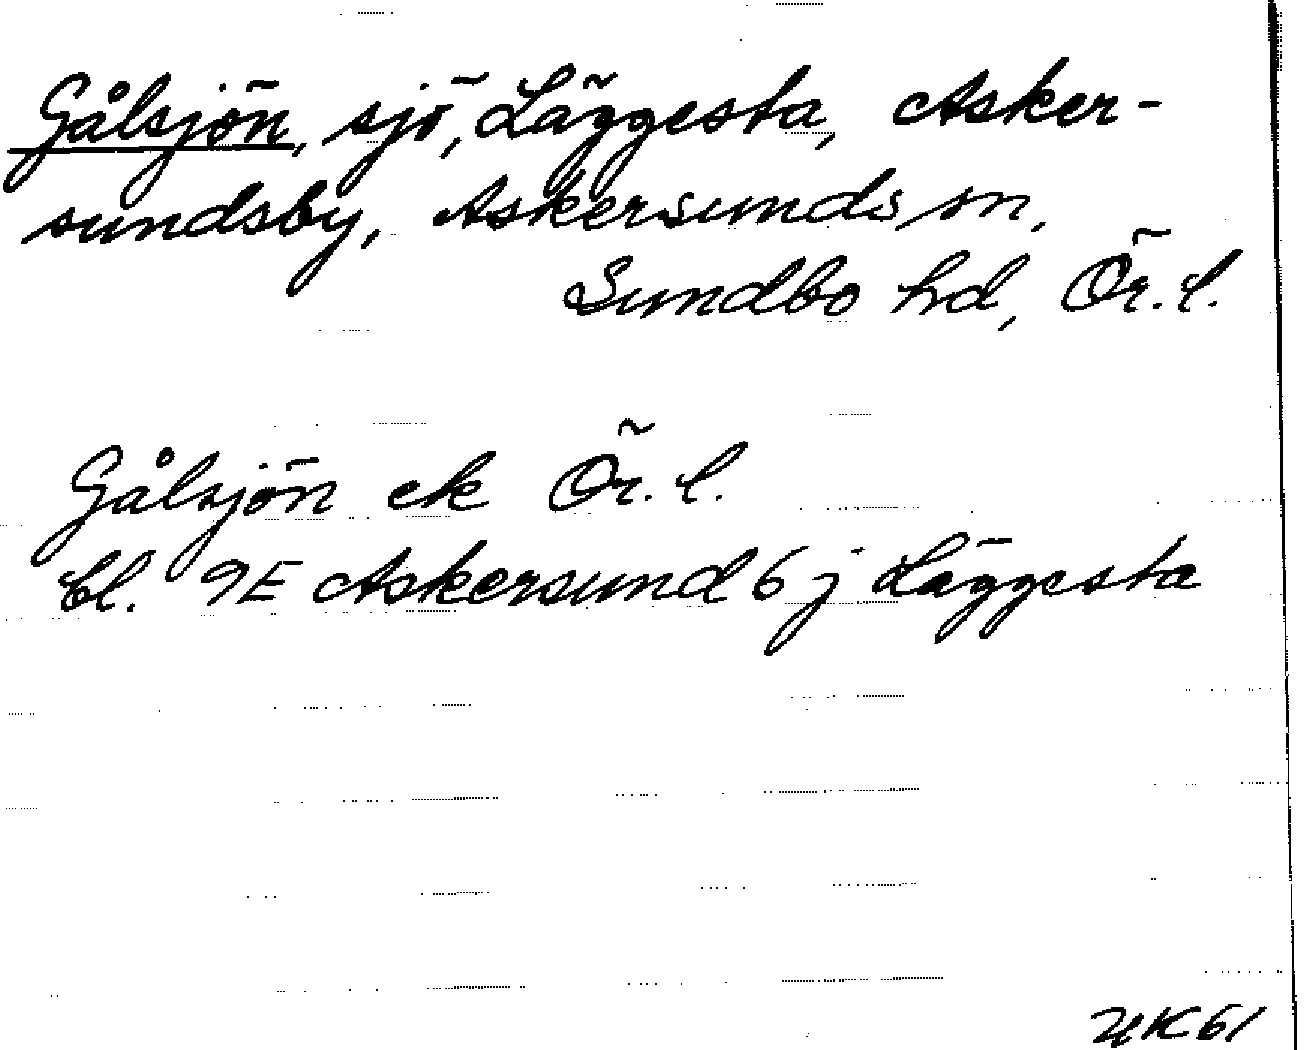 Gålsjön, sjö, Läggesta, Asker-
sundsby, Askersunds sn,
Sundbo hd, Ör. l.
Gålsjön ek Ör. l.
bl. 9E Askersund 6 j Läggesta